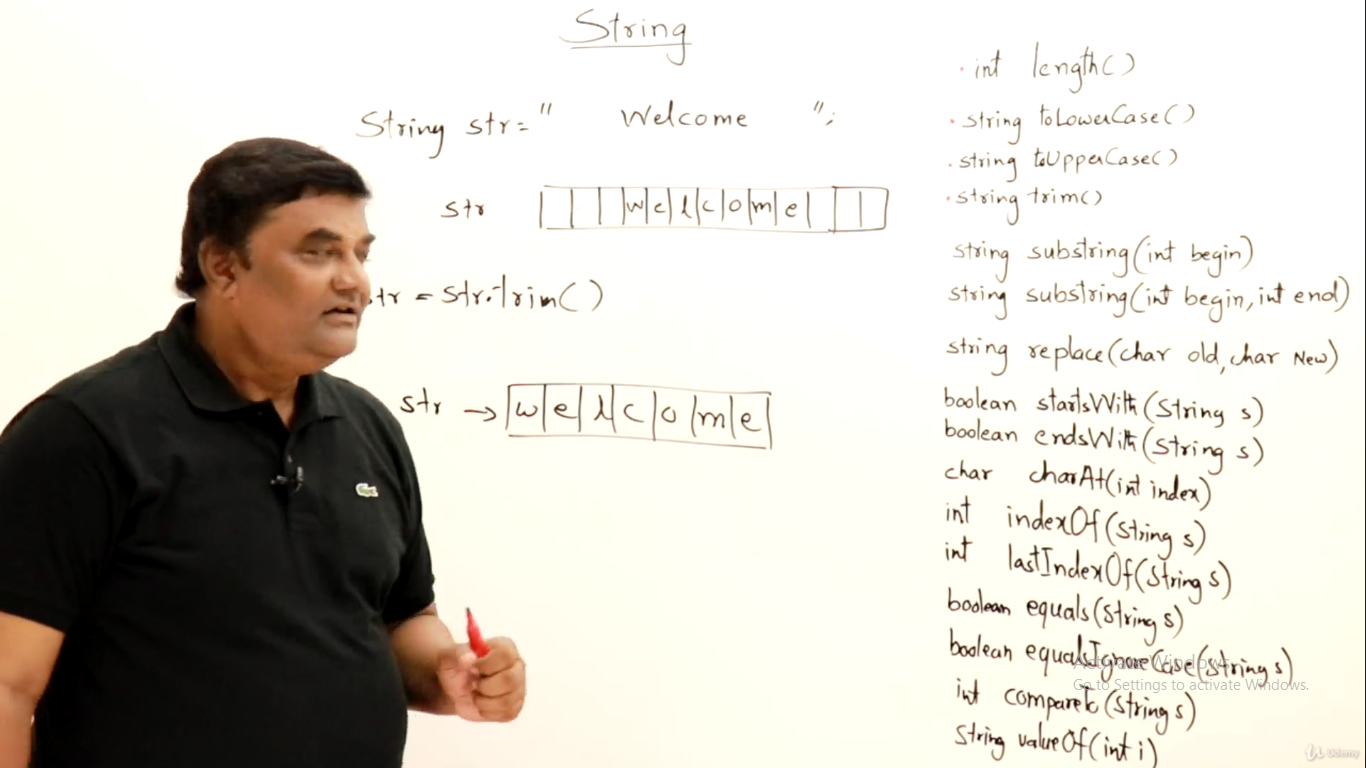 String
String str = "      Welcome      ";
str | | | |w|e|l|c|o|m|e| | | |
str = str.trim()
str → |w|e|l|c|o|m|e|
. int length()
. string toLowerCase()
. string toUpperCase()
. string trim()
string substring(int begin)
string substring(int begin, int end)
string replace(char old, char New)
boolean startsWith(String s)
boolean endsWith(String s)
char charAt(int index)
int indexOf(String s)
int lastIndexOf(String s)
boolean equals(String s)
boolean equalsIgnoreCase(String s)
int compareTo(String s)
string valueOf(int i)
Activate Windows
Go to Settings to activate Windows.
Udemy